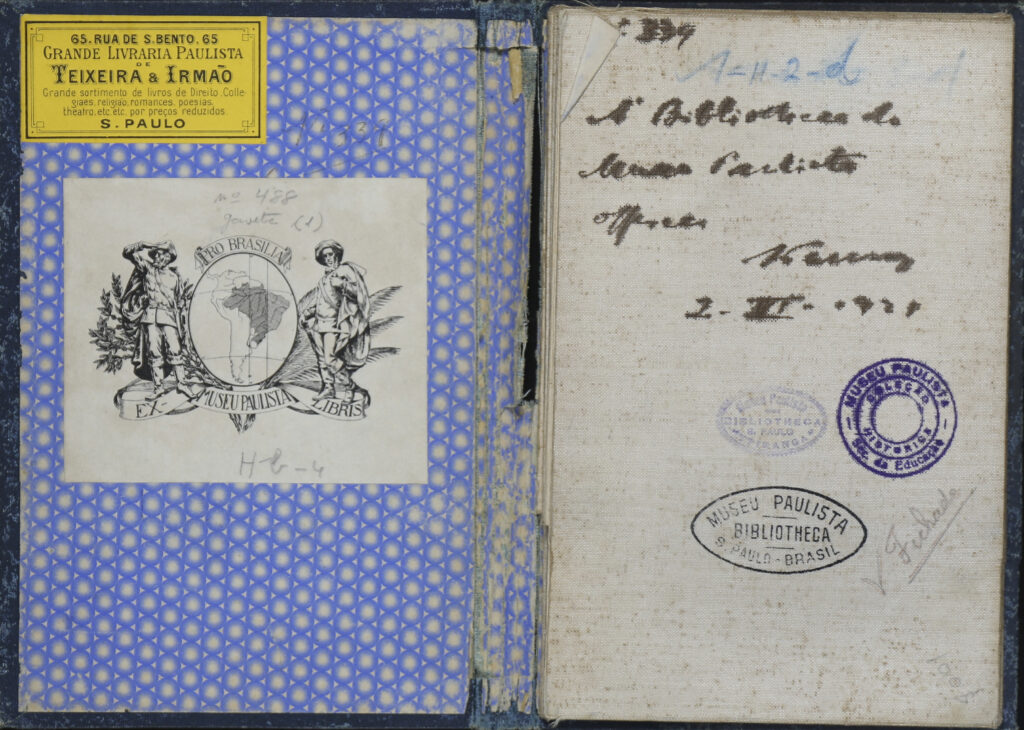 65. RUA DE S. BENTO. 65
GRANDE LIVRARIA PAULISTA
DE
TEIXEIRA & IRMÃO
Grande sortimento de livros de Direito, Colle
giaes, religião, romances, poesias,
theatro, etc. etc. por preços reduzidos.
S. PAULO
nº 488
gaveta (1)
PRO BRASILIA
EX-
MUSEU PAULISTA
LIBRIS
H b - 4
339
1-H-2-d
A' Bibliotheca do
Museu Paulista
offerece
2-III-1921
MUSEU PAULISTA
COLEÇÃO
HISTORICA
Sec. da Educação
BIBLIOTHECA
S. PAULO
YPIRANGA
MUSEU PAULISTA
BIBLIOTHECA
S. PAULO - BRASIL
Fichado